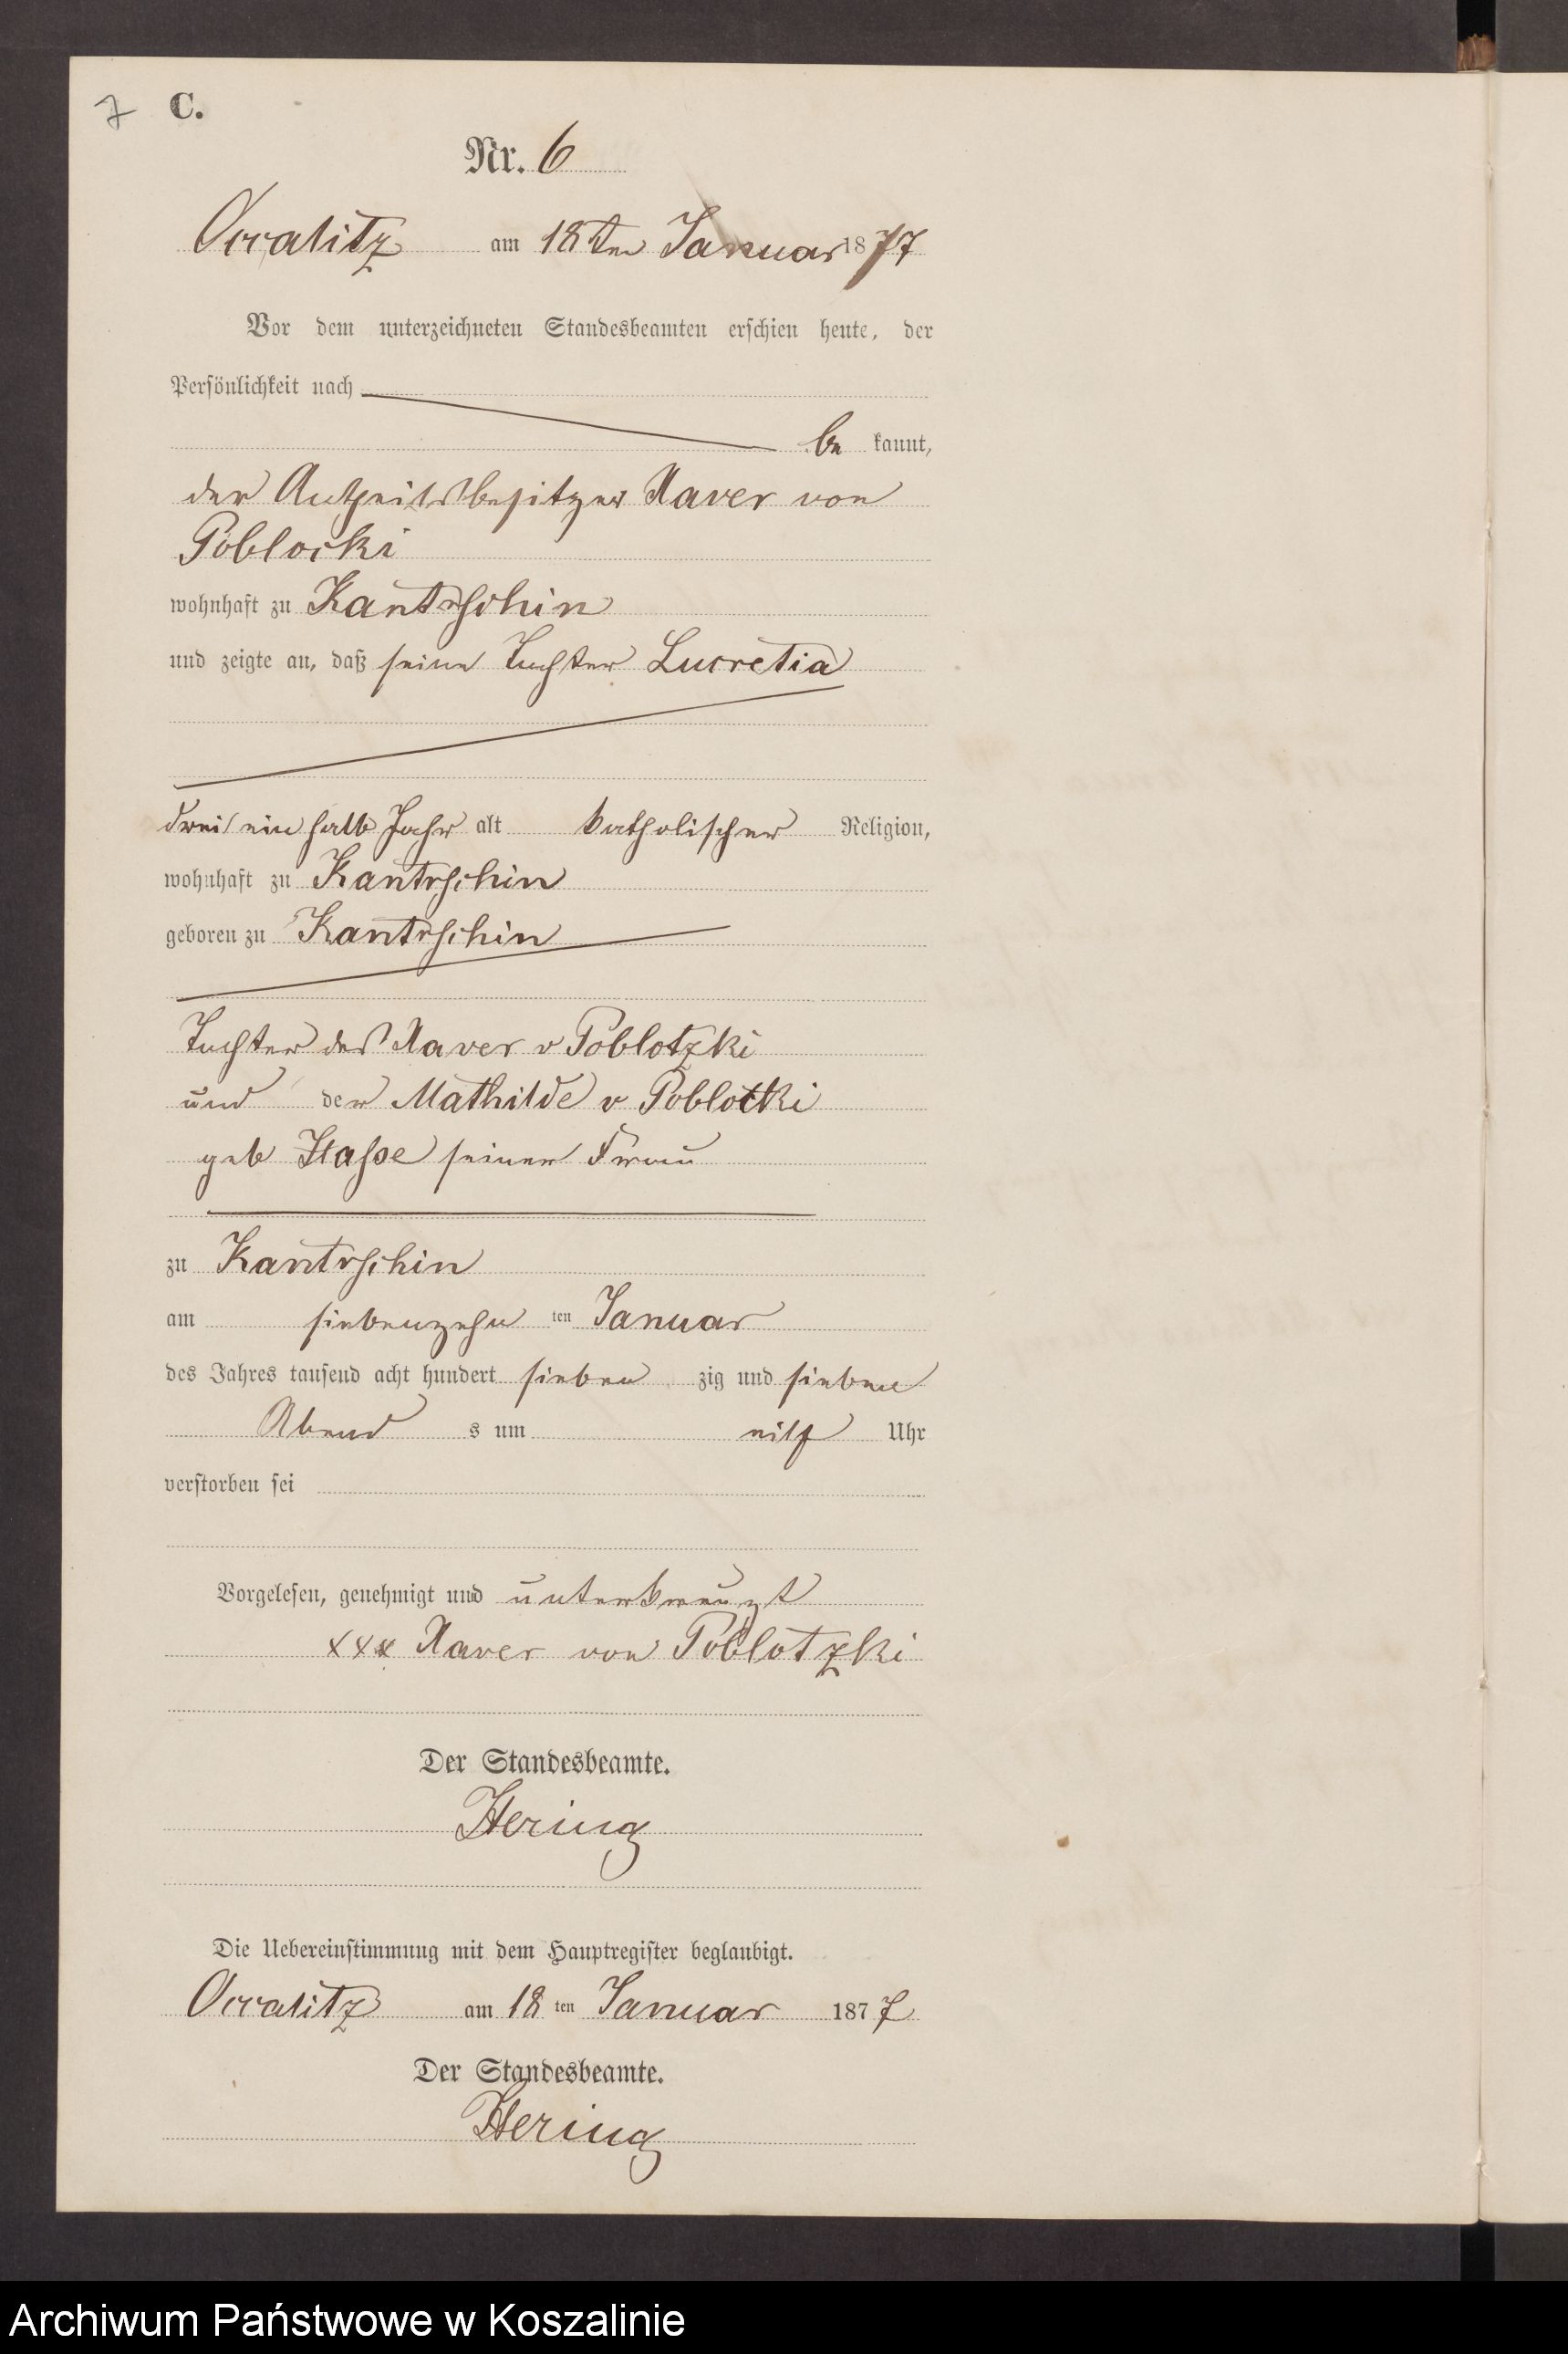 7 C.
Nr. 6
Occalitz am 18ten Januar 1877
Vor dem unterzeichneten Standesbeamten erschien heute, der
Persönlichkeit nach
be kannt,
der Antheilsbesitzer Xaver von
Poblocki
wohnhaft zu Kantrschin
und zeigte an, daß seine Tochter Lucretia
drei ein halb Jahr alt katholischer Religion,
wohnhaft zu Kantrschin
geboren zu Kantrschin
Tochter des Xaver v Poblotzki
und der Mathilde v Poblotki
geb Hasse seiner Frau
zu Kantrschin
am siebenzehn ten Januar
des Jahres tausend acht hundert sieben zig und sieben
Abend s um eilf Uhr
verstorben sei
Vorgelesen, genehmigt und unterkreuzt
xxx Xaver von Poblotzki
Der Standesbeamte.
Hering
Die Uebereinstimmung mit dem Hauptregister beglaubigt.
Occalitz am 18 ten Januar 1877
Der Standesbeamte.
Hering
Archiwum Państwowe w Koszalinie